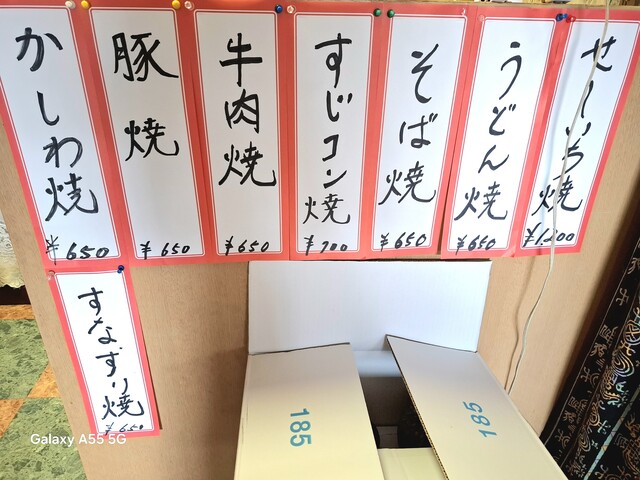 かしわ焼
¥650
豚焼
¥650
牛肉焼
¥650
すじコン焼
¥700
そば焼
¥650
うどん焼
¥650
せいいち焼
すなずり焼
¥650
185
185
Galaxy A55 5G